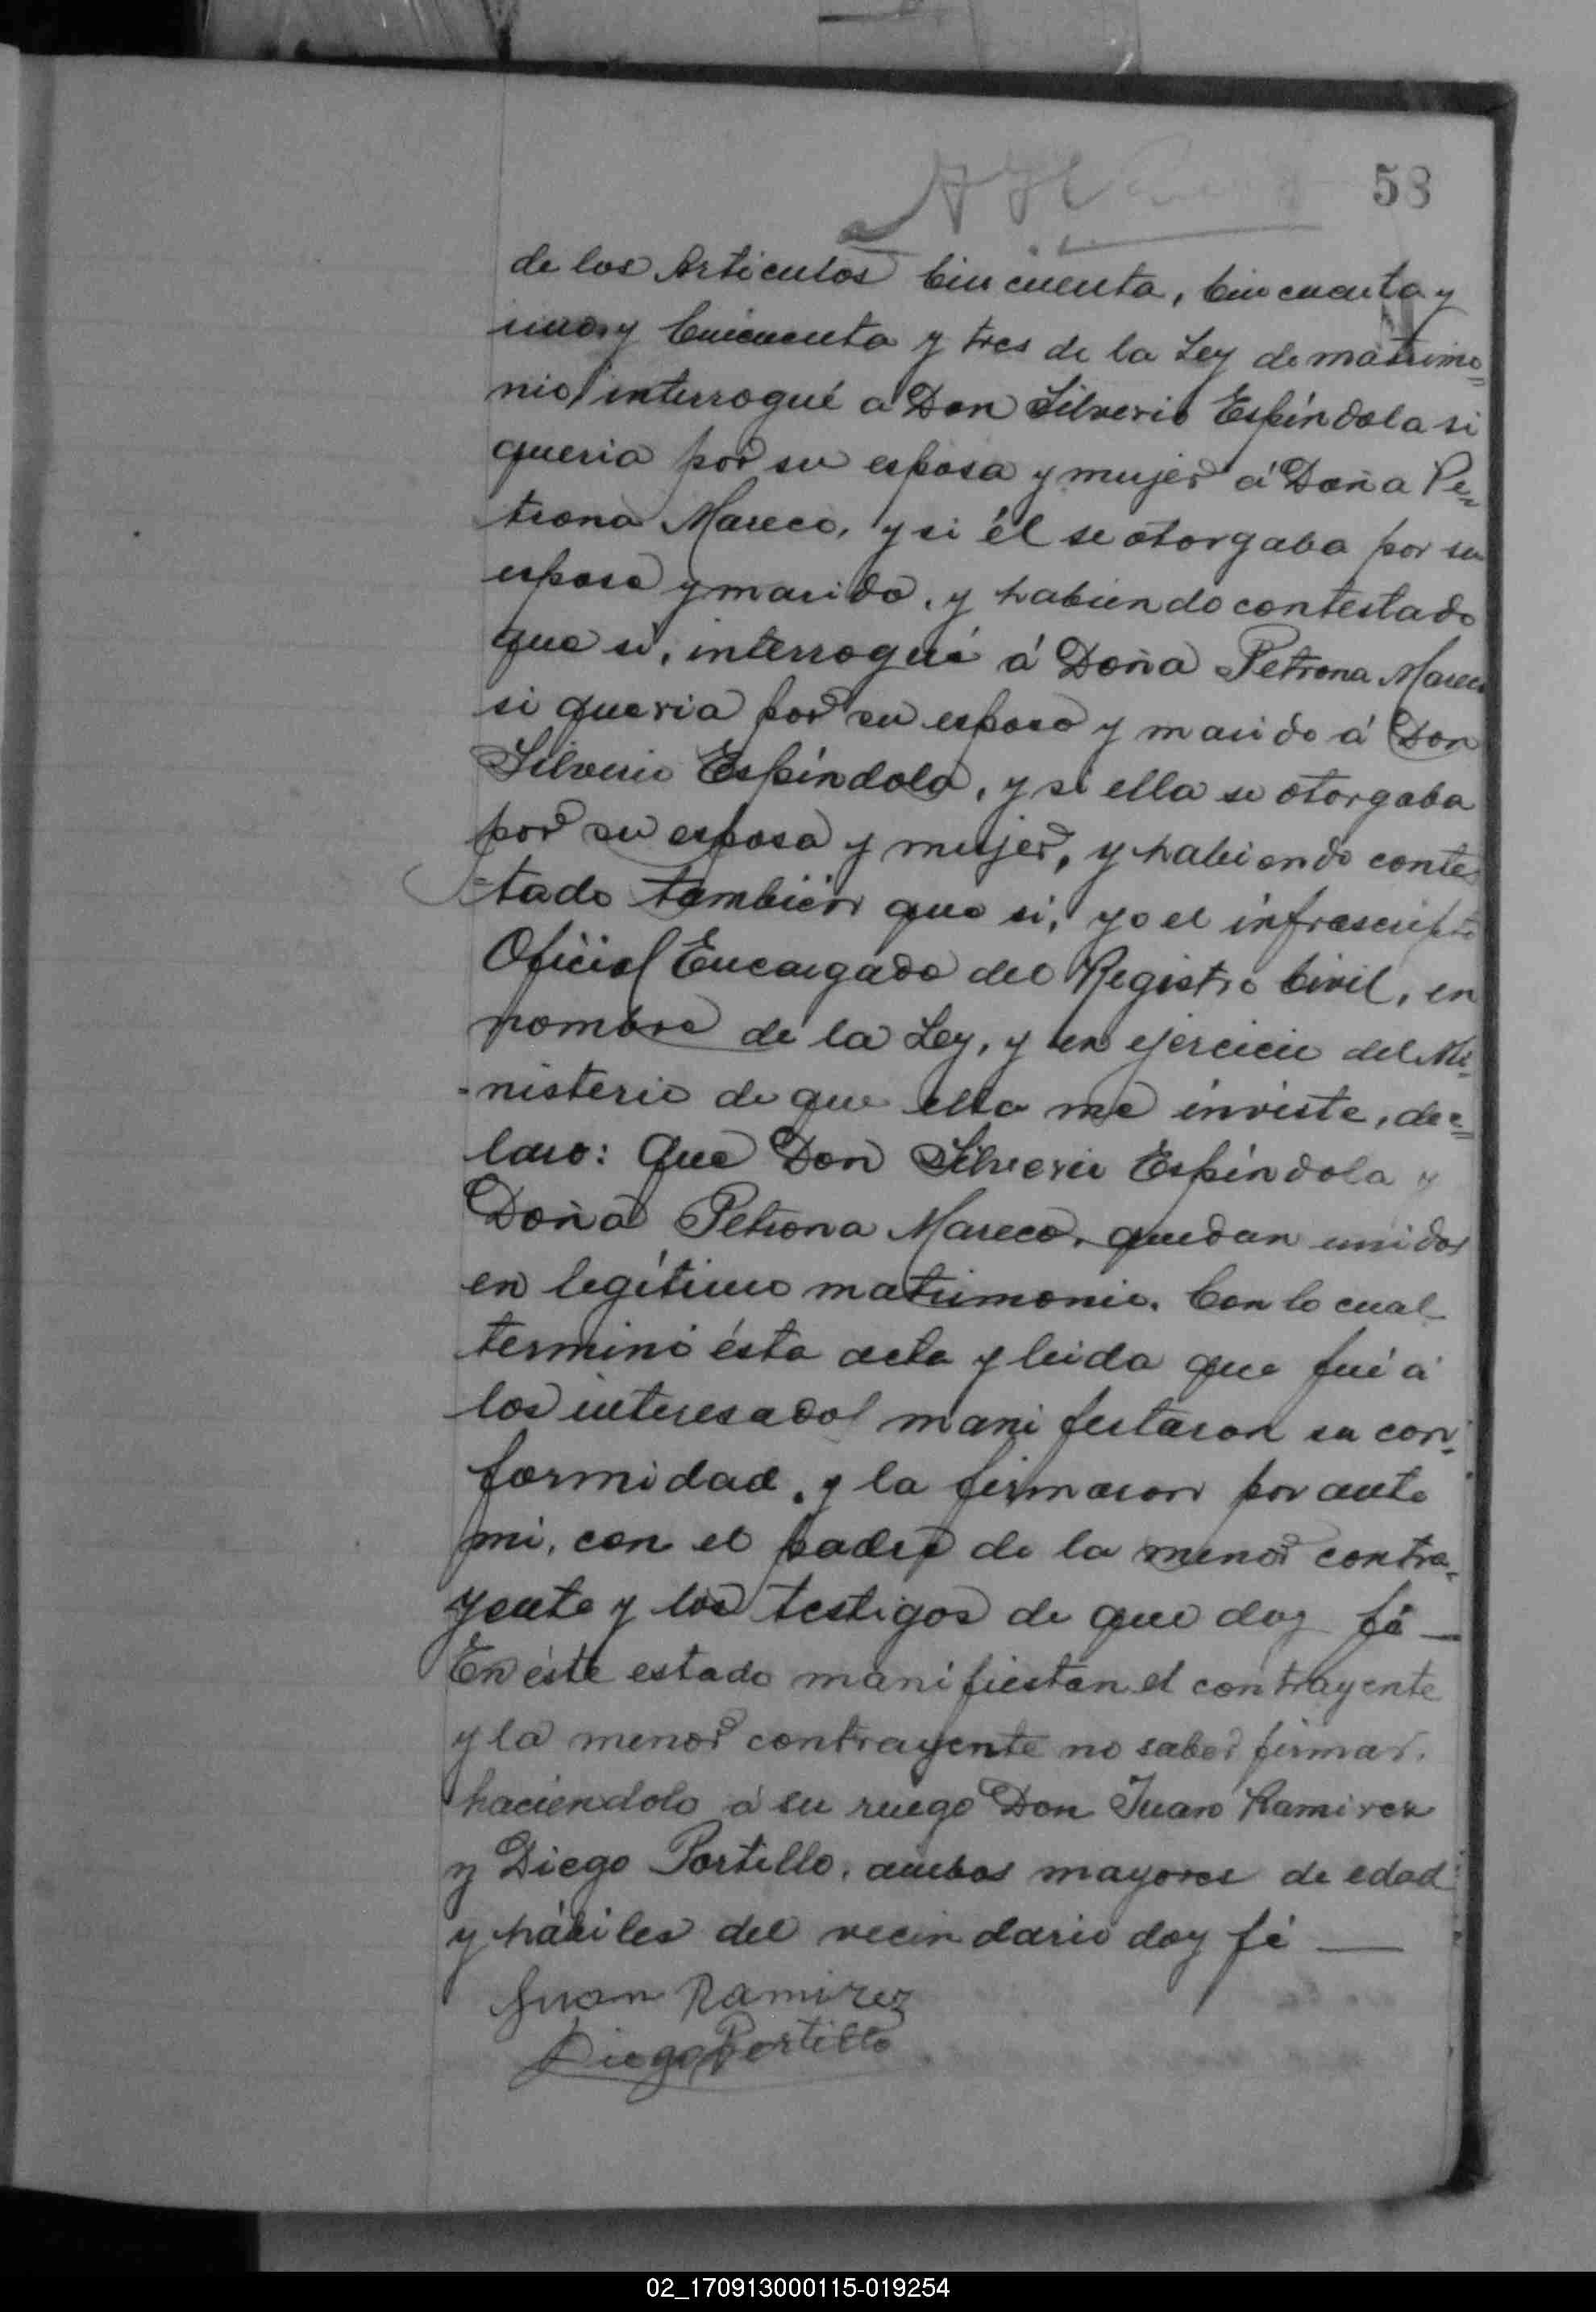 58
de los Articulos Cincuenta, Cincuenta y
uno y Cincuenta y tres de la Ley de matrimo=
nio interrogué a Don Silverio Espíndola si
queria por su esposa y mujer á Doña Pe=
trona Mareco, y si él se otorgaba por su
esposo y marido, y habiendo contestado
que si, interrogué á Doña Petrona Mareco
si queria por su esposo y marido á Don
Silverio Espíndola, y si ella se otorgaba
por su esposa y mujer, y habiendo contes
=tado también que si, yo el infrascripto
Oficial Encargado del Registro Civil, en
nombre de la Ley, y en ejercicio del Mi=
-nisterio de que ella me inviste, dec=
laro: Que Don Silverio Espíndola y
Doña Petrona Mareco, quedan unidos
en legítimo matrimonio. Con lo cual
terminó ésta acta y leida que fué á
los interesados manifestaron su con-
formidad, y la firmaron por ante
mi, con el padre de la menor contra-
yente y los testigos de que doy fé —
En éste estado manifiestan el contrayente
y la menor contrayente no saber firmar.
haciendolo á su ruego Don Juan Ramirez
y Diego Portillo, ambos mayores de edad
y hábiles del vecindario doy fé —
Juan Ramirez
Diego Portillo
02_170913000115-019254